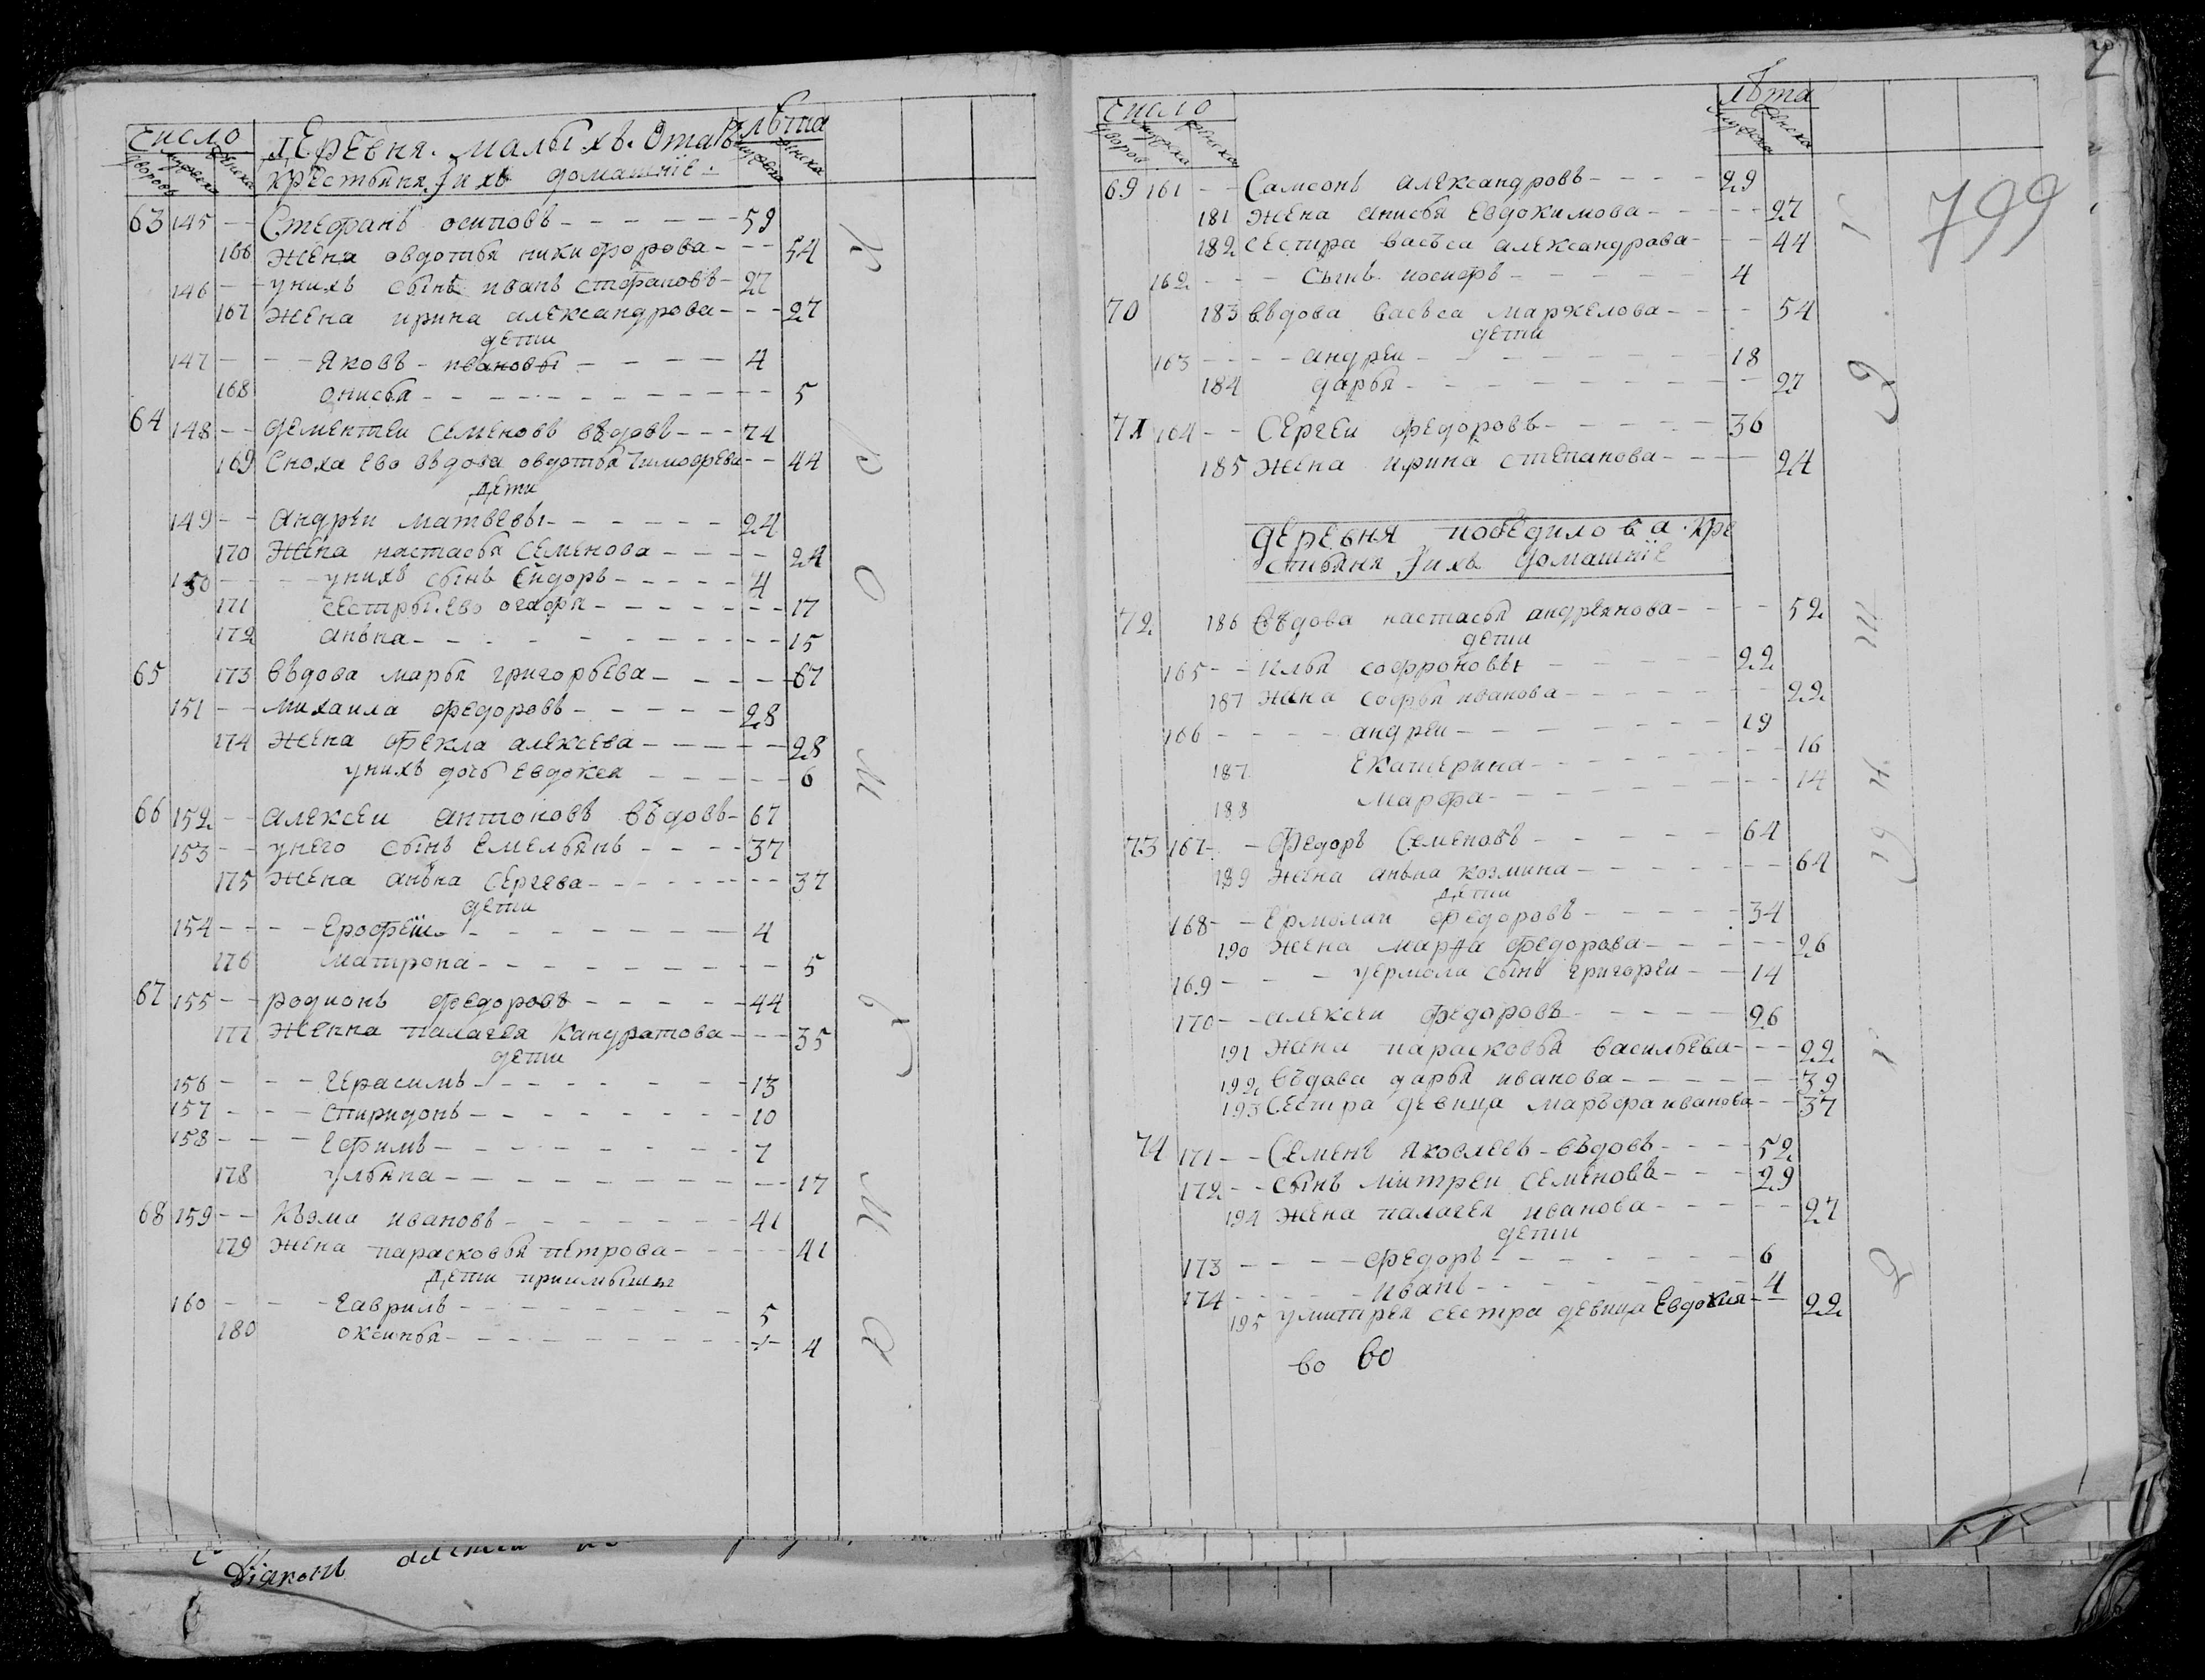 число лѣта
дворовъ мужеска женска мужеска женска
деревня. малыхъ. Ота
крестьяня. Iихъ домашнiе.
63 145 -- Стефанъ осиповъ ------- 59
166 жена овдотья никифорова --- 54
146 -- унихъ сынъ иванъ стефановъ - 27
167 жена ирина александрова --- 27
дети
147 --- Яковъ - ивановы ----- 4
168 ониcья ------------ 5
64 148 -- дементеи семеновъ въдовъ --- 74
169 Сноха ево въдова овдотья тимофеева -- 44
дети
149 -- Андреи матвеевы ------ 24
170 жена настасья семенова ---- 24
150 ---- унихъ сынъ Сидоръ ----- 4
171 сестры ево огафя ------- 17
172 анъна ----------- 15
65 173 въдова марья григорьева ----- 67
151 -- михаила федоровъ ----- 28
174 жена фекла алексева ----- 28
унихъ дочь евдокея ----- 6
66 152 -- алексеи антоновъ въдовъ - 67
153 -- унего сынъ емельянъ ---- 37
175 жена анъна сергева ------- 37
дети
154 ---- Ерофеiи -------- 4
176 матрона --------- 5
67 155 -- родионъ федоровъ ------ 44
177 женна палагея кандратова --- 35
дети
156 --- герасимъ ------- 13
157 --- спиридонъ ------- 10
158 --- ефимъ -------- 7
178 ульяна ---------- 17
68 159 -- Къзма ивановъ ------- 41
179 жена парасковья петрова ----- 41
дети приимыши
160 --- гаврилъ --------- 5
180 оксинья --------- 4
К о м
Дiяконъ
число лѣта
дворовъ мужеска женска мужеска женска
799
69 161 -- Самсонъ александровъ ---- 29
181 жена анисья евдокимова ----- 27
182 сестра васъса александрова --- 44
162 --- сынъ иосифъ ------ 4
70 183 въдова васьса маркелова ---- 54
дети
163 ---- андреи --------- 18
184 дарья --------- 27
71 164 -- Сергеи федоровъ ------ 36
185 жена ирина степанова ---- 24
деревня победилова. кре
стьяня Iихъ домашнiе
72 186 въдова настасья андреянова ---- 52
дети
165 -- илья софроновы ----- 22
187 жена софья иванова ------- 22
166 ----- андреи ------ 19
187 екатерина ------- 16
188 марфа -------- 14
73 167 -- Федоръ Семеновъ ----- 64
189 жена анъна козмина ------ 64
дети
168 -- Ермолаи федоровъ ----- 34
190 жена марфа федорова ----- 26
169 --- уермоли сынъ григореи -- 14
170 -- алексеи федоровъ ---- 26
191 жена парасковья васильева --- 22
192 въдова дарья иванова ------ 39
193 сестра девица маръфа иванова -- 37
74 171 -- Семенъ яковлевъ - въдовъ ---- 52
172 -- сынъ митреи семеновъ --- 29
194 жена палагея иванова ----- 27
дети
173 ----- федоръ ------- 6
174 ----- иванъ ------- 4
195 умитрея сестра девица Евдокия -- 22
во во